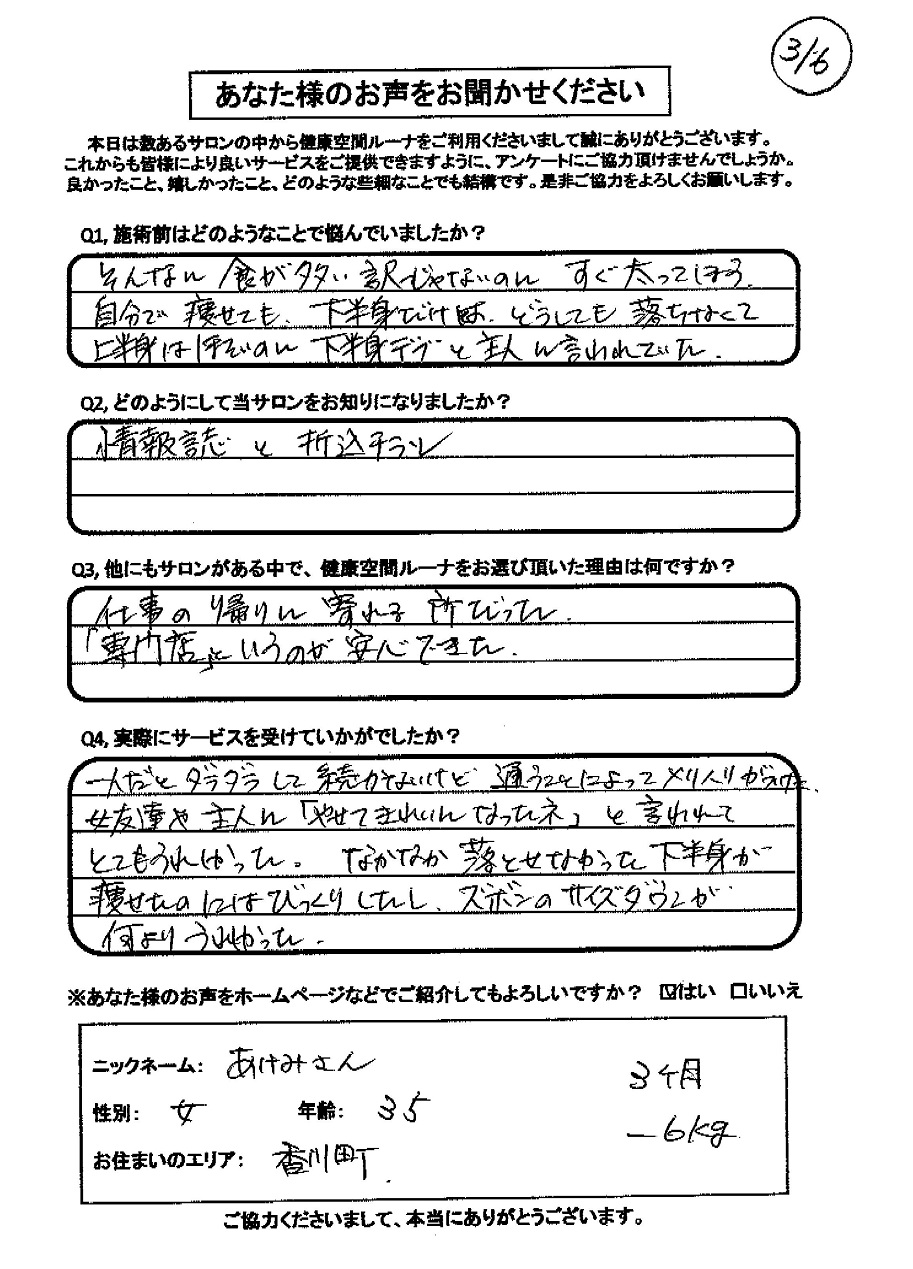 3/6
あなた様のお声をお聞かせください
本日は数あるサロンの中から健康空間ルーナをご利用くださいまして誠にありがとうございます。
これからも皆様により良いサービスをご提供できますように、アンケートにご協力頂けませんでしょうか。
良かったこと、嬉しかったこと、どのような些細なことでも結構です。是非ご協力をよろしくお願いします。
Q1, 施術前はどのようなことで悩んでいましたか？
そんなに食が多い訳じゃないのに すぐ太ってしまう.
自分で痩せても、下半身だけは、どうしても落ちなくて
上半身は細いのに 下半身デブと主人に言われていた.
Q2, どのようにして当サロンをお知りになりましたか？
情報誌と折込チラシ
Q3, 他にもサロンがある中で、健康空間ルーナをお選び頂いた理由は何ですか？
仕事の帰りに寄れる所だった.
「専門店」というのが安心できた.
Q4, 実際にサービスを受けていかがでしたか？
一人だとダラダラして続かないけど 通うことによってメリハリがつけた.
女友達や主人に「やせてきれいになったネ」と言われて
とてもうれしかった。 なかなか落とせなかった下半身が
痩せたのにはびっくりしたし、ズボンのサイズダウンが
何よりうれしかった.
※あなた様のお声をホームページなどでご紹介してもよろしいですか？ ☑はい □いいえ
ニックネーム: あけみさん
3ヶ月
性別: 女 年齢: 35
－6kg
お住まいのエリア: 香川町.
ご協力くださいまして、本当にありがとうございます。